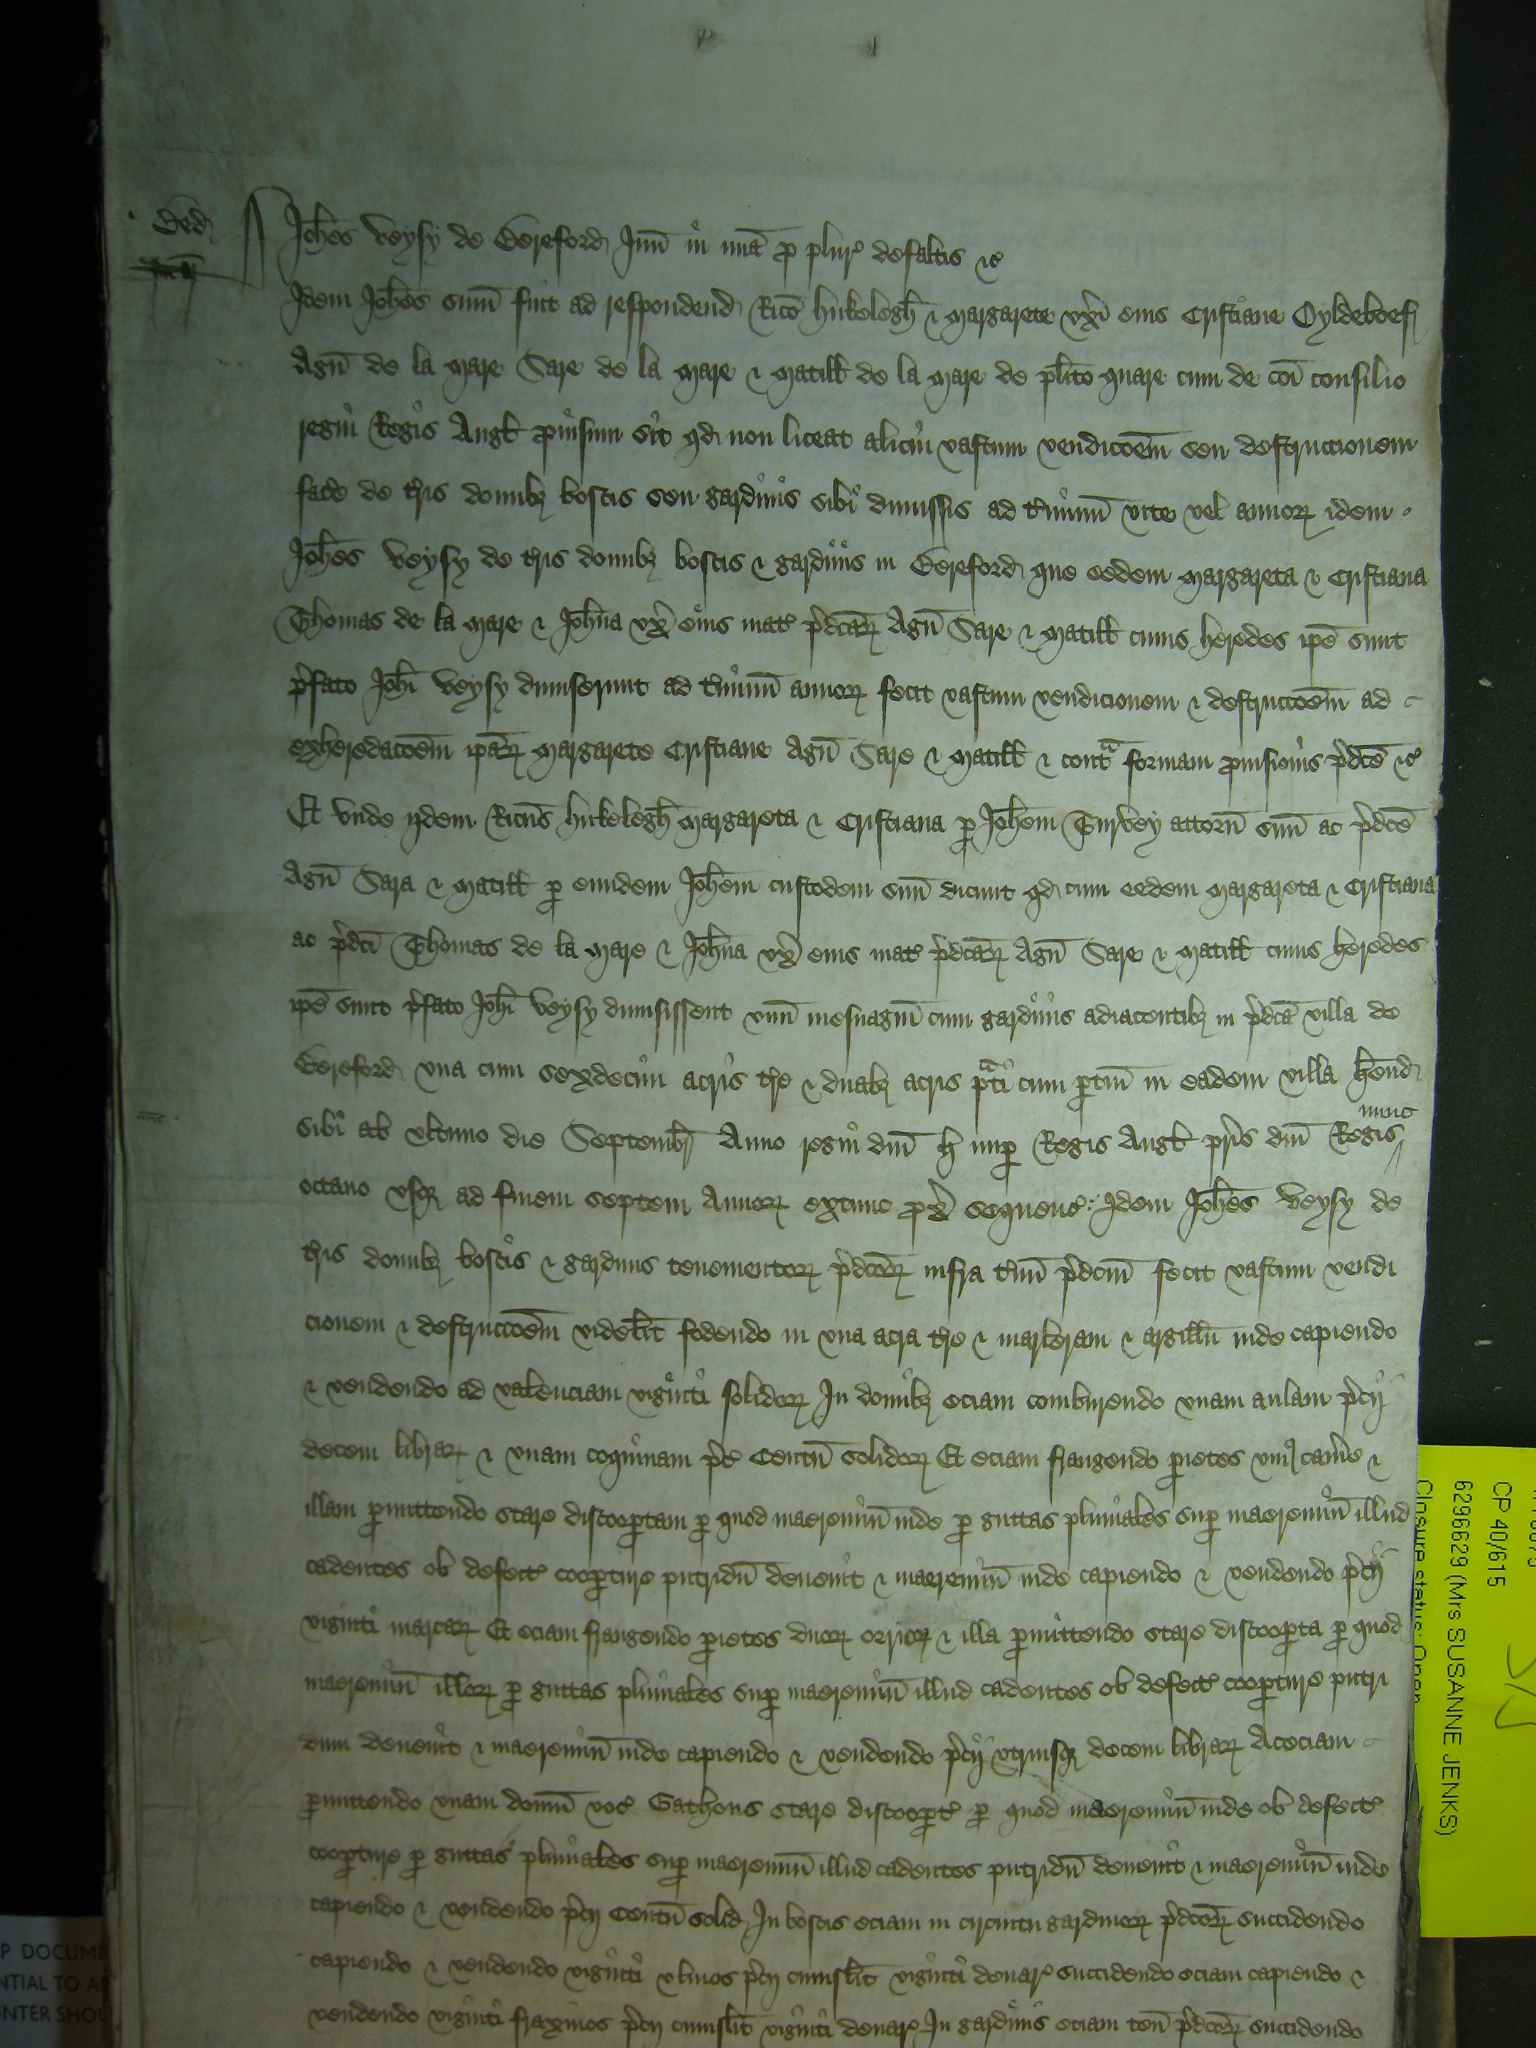 Bed
Joh̄es Veysy de Bereford Jun̄ in mīa p̱ plur' defaltis &c̄
Idem Joh̄es sum̄ fuit ad respondend Ric̄o Hikelogh̄ & Margarete vx̄i eius Cristiane Oyldeboef
Agn̄ de la Mare Sare de la Mare & Matill̄ de la Mare de pl̄ito quare cum de cōi consilio
regni Regis Angl̄ ꝓuisum sit qd non liceat alicui vastum vendicōem̄ seu destruccionem
fac̄e de t̄ris domibȝ boscis seu gardinis sibi dimissis ad t̄minū vite vel annoꝝ idem
Joh̄es Veysy de t̄ris domibȝ boscis & gardinis in Bereford que eedem Margareta & Cristiana
Thomas de la Mare & Joh̄na vx̄ eius mat' p̄dc̄aꝝ Agn̄ Sare & Matill̄ cuius heredes ip̄e sunt
p̄fato Joh̄i Veysy dimiserunt ad t̄minū annoꝝ fecit vastum vendicionem & destruccōem̄ ad
exheredacōem̄ ip̄aꝝ Margarete Cristiane Agn̄ Sare & Matill̄ & cont̄ᵃ formam ꝓuisionis p̄dc̄e &c̄
Et vnde ijdem Ric̄us Hikelogh̄ Margareta & Cristiana p̱ Joh̄em Turvey attorn̄ suū ac p̄dc̄e
Agn̄ Sara & Matill̄ p̱ eundem Joh̄em custodem suū dicunt qd cum eedem Margareta & Cristiana
ac p̄dc̄i Thomas de la Mare & Joh̄na vx̄ eius mat' p̄dc̄aꝝ Agn̄ Sare & Matill̄ cuius heredes
ip̄e sunt p̄fato Joh̄i Veysy dimisissent vnū mesuagiū cum gardinis adiacentibȝ in p̄dc̄a villa de
Bereford vna cum sexdecim acris t̄re & duabȝ acris p̄ᵃti cum p̱tin̄ in eadem villa h̄end
sibi ab vltimo die Septembr̄ Anno regni dn̄i H nup̱ Regis Angl̄ pr̄is dn̄i Regis nunc
octauo vsqȝ ad finem septem Annoꝝ extunc ꝓx̄ sequenc' Idem Joh̄es Veysy de
t̄ris domibȝ boscis & gardinis tenementoꝝ p̄dc̄oꝝ infra t̄minū p̄dc̄m̄ fecit vastum vendi
cionem & destruccōem̄ videl̄it fodendo in vna acra t̄re & marleram & argillū inde capiendo
& vendendo ad valenciam viginti solidoꝝ In domibȝ eciam comburendo vnam aulam p̄cij
decem libraꝝ & vnam coquinam p̄c' Centū solidoꝝ Et eciam frangendo p̱ietes vni⁹ cam̄e &
illam p̱mittendo stare discoop̱tam p̱ quod maeremiū inde p̱ guttas pluuiales sup̱ maeremiū illud
cadentes ob defect' coop̱ture putridū deuenit & maeremiū inde capiendo & vendendo p̄cij
viginti marcaꝝ Et eciam frangendo p̱ietes duoꝝ orrioꝝ & illa p̱mittendo stare discoop̱ta p̱ quod
maeremiū illoꝝ p̱ guttas pluuiales sup̱ maeremiū illud cadentes ob defect' coop̱ture putri
dum deuenit & maeremiū inde capiendo & vendendo p̄cij vtriusqȝ decem libraꝝ Aceciam
p̱mittendo vnam domū voc' Gathous stare discoop̱t' p̱ quod maeremiū inde ob defect'
coop̱ture p̱ guttas pluuiales sup̱ maeremiū illud cadentes putridū deuenit & maeremiū inde
capiendo & vendendo p̄cij Centū solid In boscis eciam in circuitu gardinoꝝ p̄dc̄oꝝ succidendo
capiendo & vendendo viginti vlmos p̄cij cuiusl̄it viginti denar' succidendo eciam capiendo &
vendendo viginti fraxinos p̄cij cuiusl̄it viginti denar' In gardinis eciam ten̄ p̄dc̄oꝝ succidendo
CP 40/615
6296629 (Mrs SUSANNE JENKS)
Closure status: Open
P DOCUME
NTIAL TO A
NTER SHOU